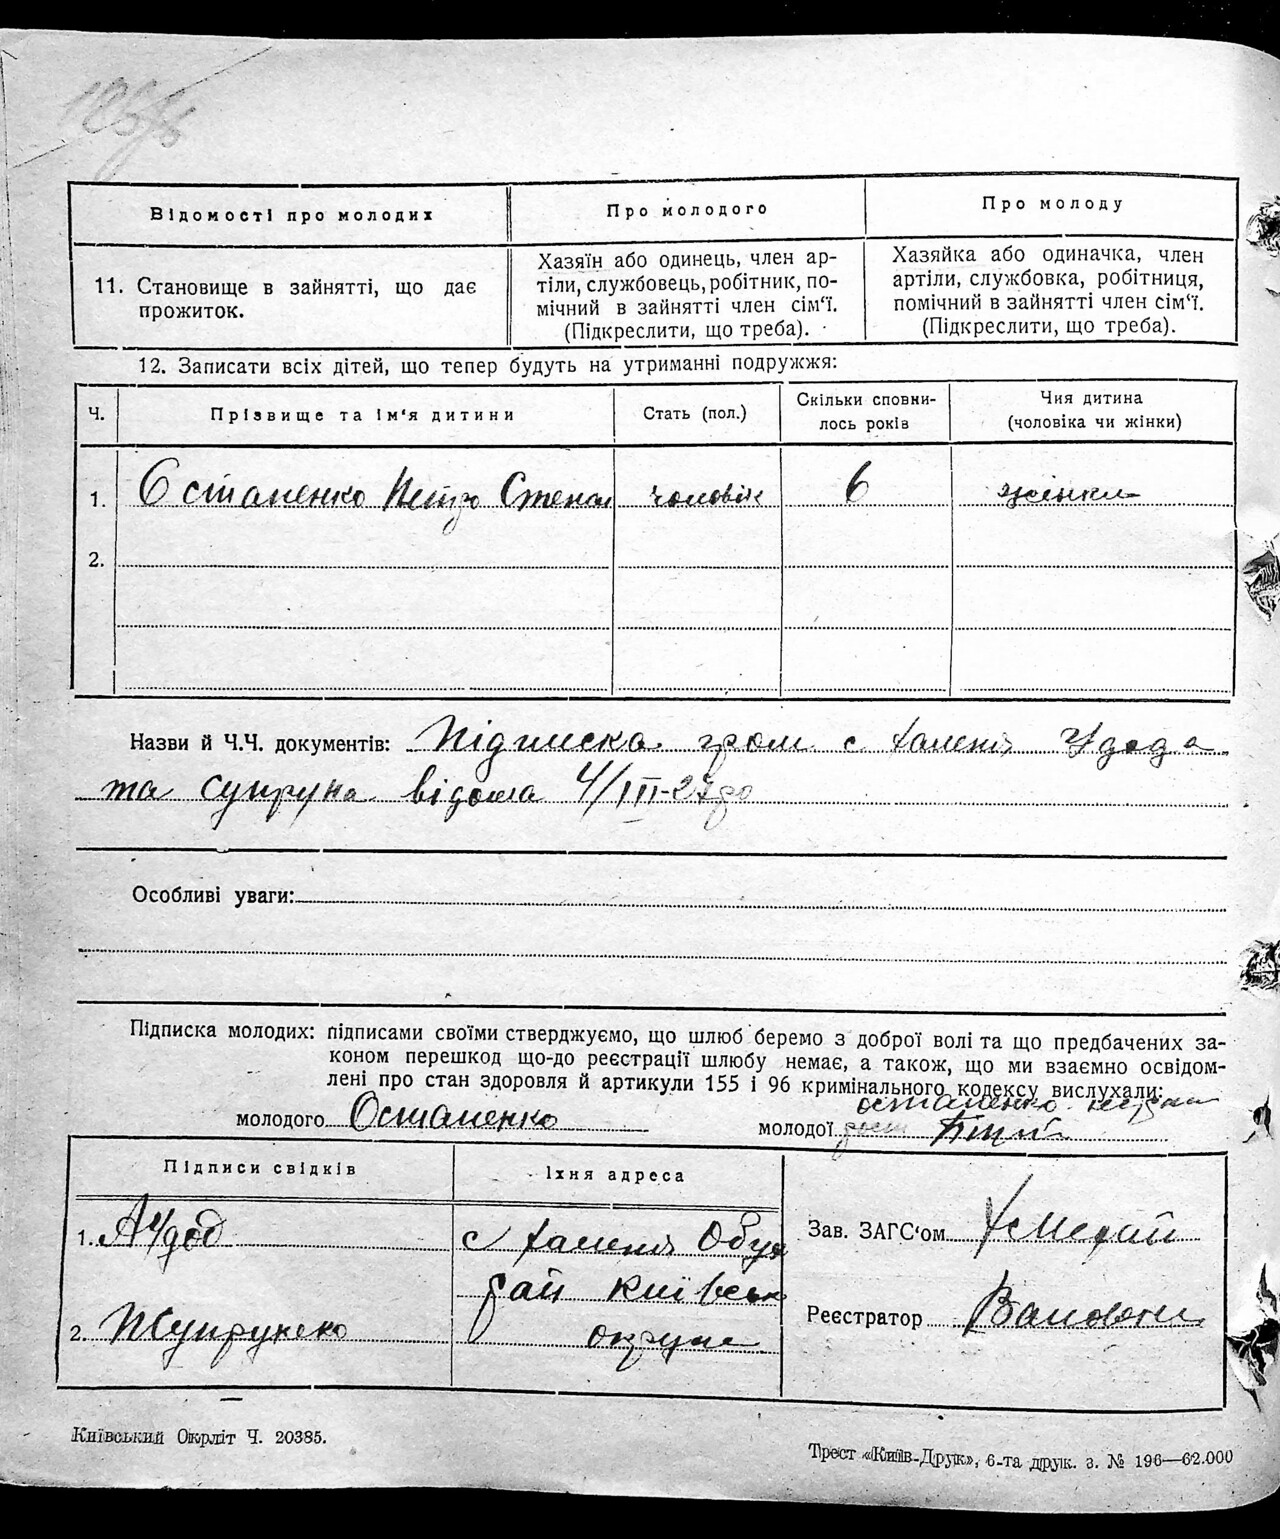 Відомості про молодих
Про молодого
Про молоду
11. Становище в зайнятті, що дає
прожиток.
Хазяїн або одинець, член ар-
тіли, службовець, робітник, по-
мічний в зайнятті член сім‘ї.
(Підкреслити, що треба).
Хазяйка або одиначка, член
артіли, службовка, робітниця,
помічний в зайнятті член сім‘ї.
(Підкреслити, що треба).
12. Записати всіх дітей, що тепер будуть на утриманні подружжя:
Ч.
Прізвище та ім‘я дитини
Стать (пол.)
Скільки сповни-
лось років
Чия дитина
(чоловіка чи жінки)
1. Остапенко Петро Степан чоловік 6 жінки
2.
Назви й Ч.Ч. документів: Підписка гром с Халепя Удода
та Супруна відома 4/III-27
Особливі уваги:
Підписка молодих: підписами своїми стверджуємо, що шлюб беремо з доброї волі та що предбачених за-
коном перешкод що-до реєстрації шлюбу немає, а також, що ми взаємно освідом-
лені про стан здоровля й артикули 155 і 96 кримінального кодексу вислухали:
молодого Остапенко
молодої
остапенко
Підписи свідків
Їхня адреса
1. А Удод
с Халепя Обух
рай Київськ
округи
2.
Зав. ЗАГС‘ом
Реєстратор
Київський Окрліт Ч. 20385.
Трест «Київ-Друк», 6-та друк. з. № 196—62.000